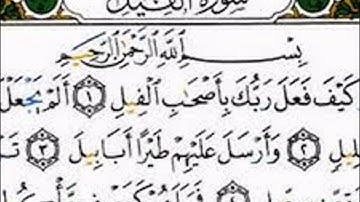 سُورَةُ الفِيلِ
بِسْمِ اللَّهِ الرَّحْمَٰنِ الرَّحِيمِ
كَيْفَ فَعَلَ رَبُّكَ بِأَصْحَابِ الْفِيلِ ١ أَلَمْ يَجْعَلْ
لِيلٍ ٢ وَأَرْسَلَ عَلَيْهِمْ طَيْرًا أَبَابِيلَ ٣